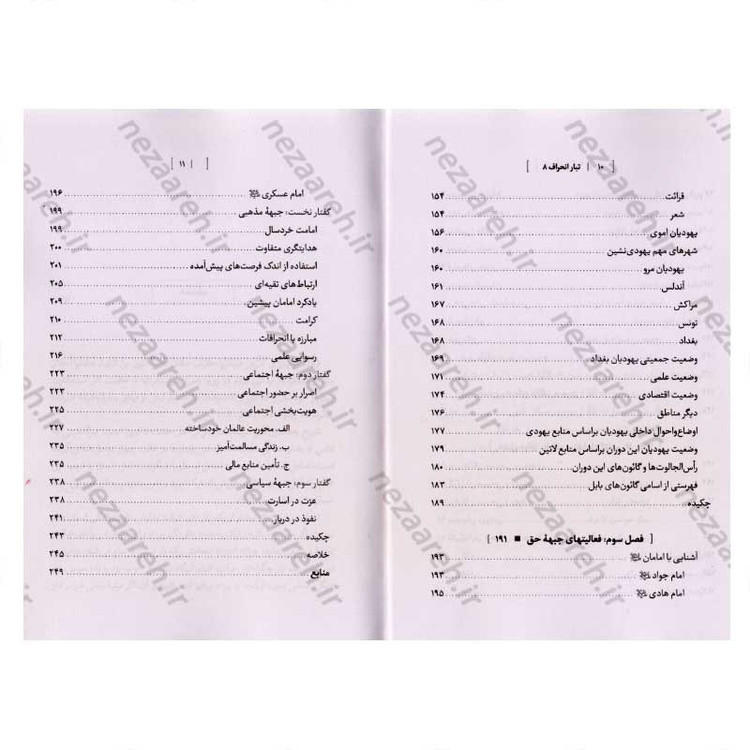 [ ۱۰ | تبار انحراف ۸ ]
قرائت ۱۵۴
شعر ۱۵۴
یهودیان اموی ۱۵۶
شهرهای مهم یهودی‌نشین ۱۶۰
یهودیان مرو ۱۶۰
آندلس ۱۶۱
مراکش ۱۶۷
تونس ۱۶۸
بغداد ۱۶۸
وضعیت جمعیتی یهودیان بغداد ۱۶۹
وضعیت علمی ۱۷۱
وضعیت اقتصادی ۱۷۴
دیگر مناطق ۱۷۶
اوضاع‌واحوال داخلی یهودیان براساس منابع یهودی ۱۷۷
وضعیت یهودیان این دوران براساس منابع لاتین ۱۷۹
رأس‌الجالوت‌ها و گائون‌های این دوران ۱۸۰
فهرستی از اسامی گائون‌های بابل ۱۸۳
چکیده ۱۸۹
[ فصل سوم: فعالیتهای جبهۀ حق ■ ۱۹۱ ]
آشنایی با امامان ۱۹۳
امام جواد ۱۹۳
امام هادی ۱۹۵
[ | ۱۱ ]
امام عسکری ۱۹۶
گفتار نخست: جبهۀ مذهبی ۱۹۹
امامت خردسال ۱۹۹
هدایتگری متفاوت ۲۰۰
استفاده از اندک فرصت‌های پیش‌آمده ۲۰۱
ارتباط‌های تقیه‌ای ۲۰۵
یادکرد امامان پیشین ۲۰۹
کرامت ۲۱۰
مبارزه با انحرافات ۲۱۲
رسوایی علمی ۲۱۶
گفتار دوم: جبهۀ اجتماعی ۲۲۳
اصرار بر حضور اجتماعی ۲۲۳
هویت‌بخشی اجتماعی ۲۲۵
الف. محوریت عالمان خودساخته ۲۲۷
ب. زندگی مسالمت‌آمیز ۲۳۵
ج. تأمین منابع مالی ۲۳۵
گفتار سوم: جبهۀ سیاسی ۲۳۸
عزت در اسارت ۲۳۸
نفوذ در دربار ۲۴۱
چکیده ۲۴۳
خلاصه ۲۴۵
منابع ۲۴۹
nezaareh.ir